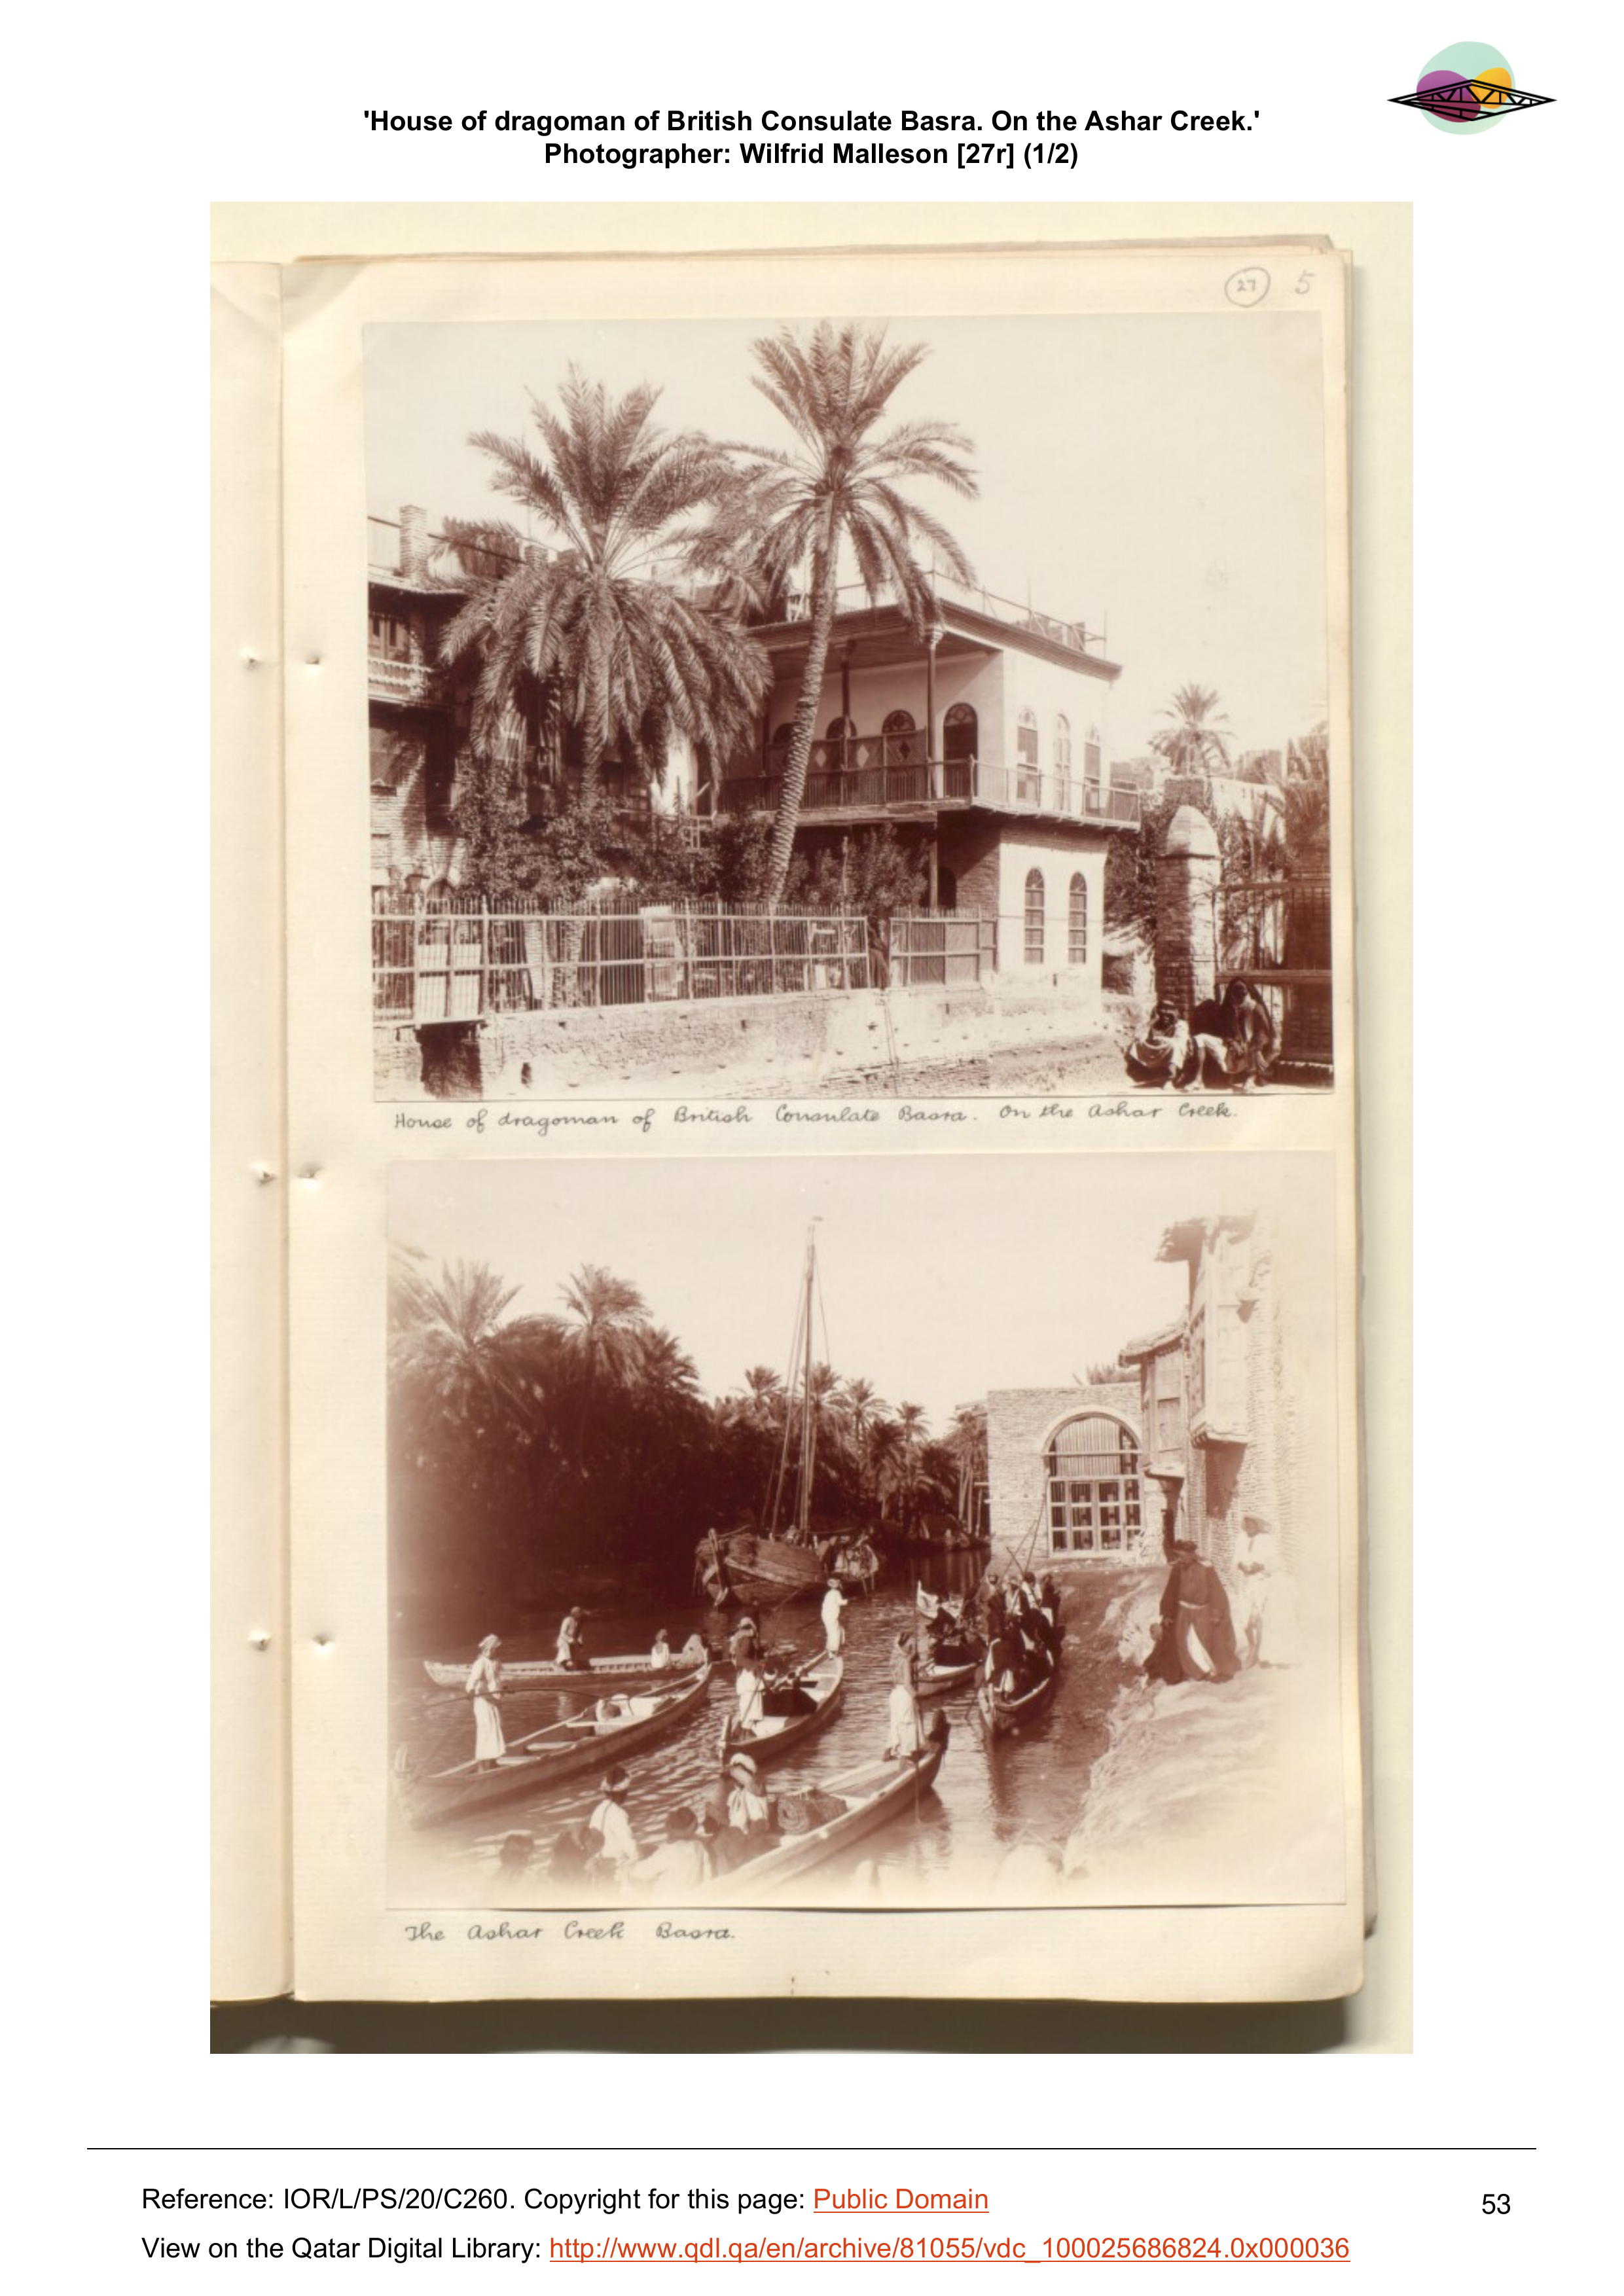 'House of dragoman of British Consulate Basra. On the Ashar Creek.'
Photographer: Wilfrid Malleson [27r] (1/2)
27 5
House of dragoman of British Consulate Basra. On the Ashar Creek.
The Ashar Creek Basra.
Reference: IOR/L/PS/20/C260. Copyright for this page: Public Domain
53
View on the Qatar Digital Library: http://www.qdl.qa/en/archive/81055/vdc_100025686824.0x000036